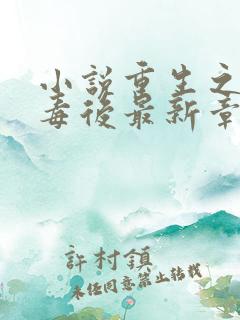 小說重生之
毒後最新章
許村鎮
未經同意禁止轉載